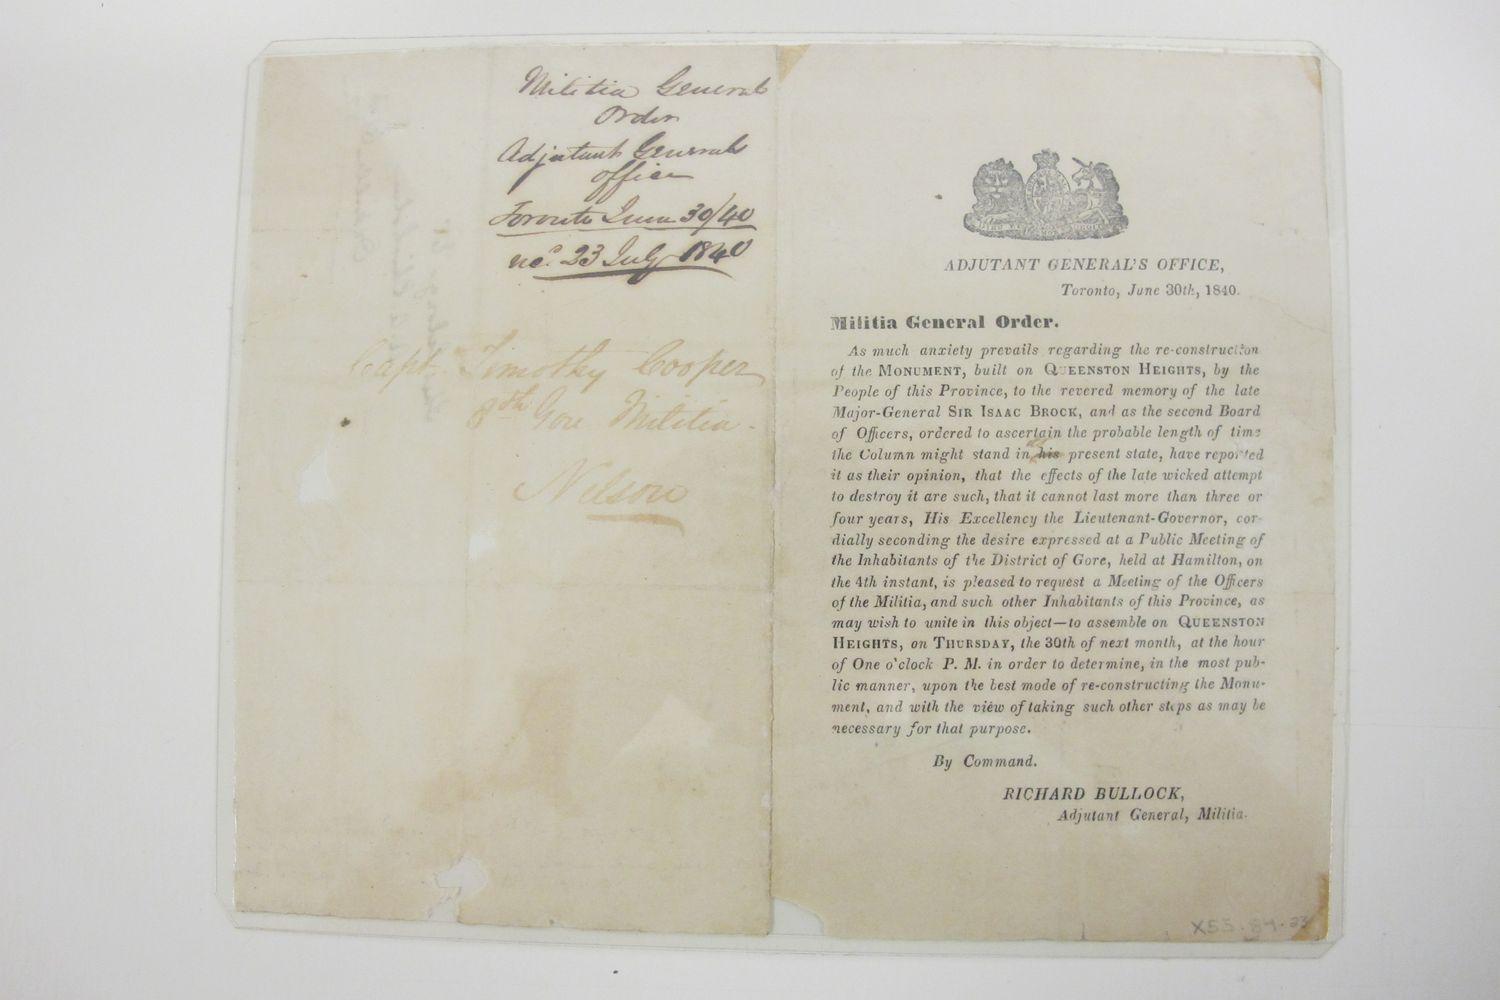 Militia General
Order
Adjutant Generals
office
Toronto June 30/40
recd. 23 July 1840
Capt. Timothy Cooper
8th Gore Militia.
Nelson
ADJUTANT GENERAL'S OFFICE,
Toronto, June 30th, 1840.
Militia General Order.
As much anxiety prevails regarding the re-construction
of the MONUMENT, built on QUEENSTON HEIGHTS, by the
People of this Province, to the revered memory of the late
Major-General SIR ISAAC BROCK, and as the second Board
of Officers, ordered to ascertain the probable length of time
the Column might stand in his present state, have reported
it as their opinion, that the effects of the late wicked attempt
to destroy it are such, that it cannot last more than three or
four years, His Excellency the Lieutenant-Governor, cor-
dially seconding the desire expressed at a Public Meeting of
the Inhabitants of the District of Gore, held at Hamilton, on
the 4th instant, is pleased to request a Meeting of the Officers
of the Militia, and such other Inhabitants of this Province, as
may wish to unite in this object—to assemble on QUEENSTON
HEIGHTS, on THURSDAY, the 30th of next month, at the hour
of One o'clock P. M. in order to determine, in the most pub-
lic manner, upon the best mode of re-constructing the Monu-
ment, and with the view of taking such other steps as may be
necessary for that purpose.
By Command.
RICHARD BULLOCK,
Adjutant General, Militia.
X55.84.33